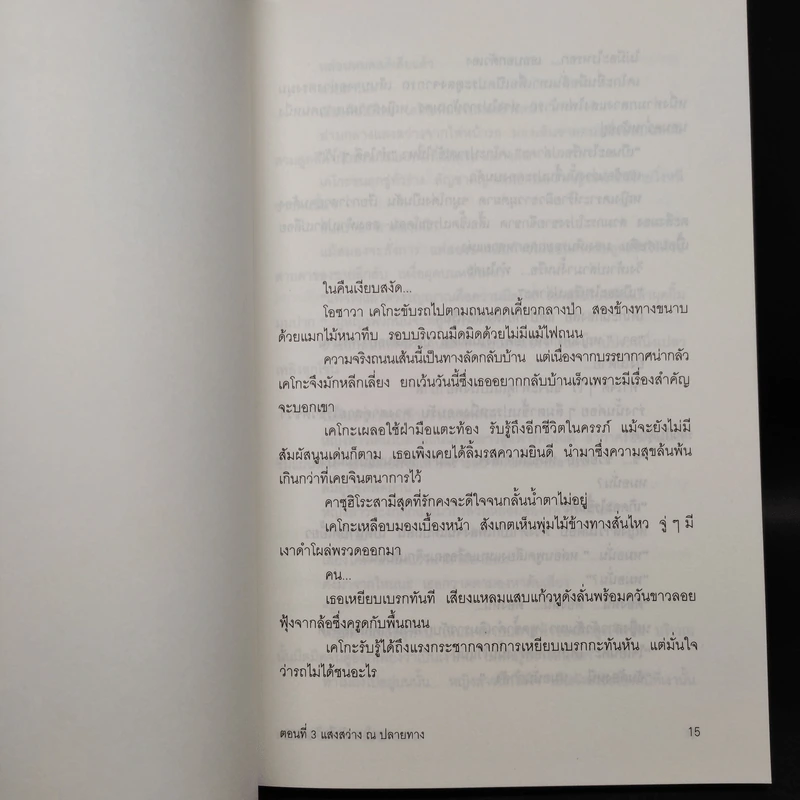 ในคืนเงียบสงัด...
โอซาวา เคโกะขับรถไปตามถนนคดเคี้ยวกลางป่า สองข้างทางขนาบ
ด้วยแมกไม้หนาทึบ รอบบริเวณมืดมิดด้วยไม่มีแม้ไฟถนน
ความจริงถนนเส้นนี้เป็นทางลัดกลับบ้าน แต่เนื่องจากบรรยากาศน่ากลัว
เคโกะจึงมักหลีกเลี่ยง ยกเว้นวันนี้ซึ่งเธออยากกลับบ้านเร็วเพราะมีเรื่องสำคัญ
จะบอกเขา
เคโกะเผลอใช้ฝ่ามือแตะท้อง รับรู้ถึงอีกชีวิตในครรภ์ แม้จะยังไม่มี
สัมผัสนูนเด่นก็ตาม เธอเพิ่งเคยได้ลิ้มรสความยินดี นำมาซึ่งความสุขล้นพ้น
เกินกว่าที่เคยจินตนาการไว้
คาซุฮิโระสามีสุดที่รักคงจะดีใจจนกลั้นน้ำตาไม่อยู่
เคโกะเหลือบมองเบื้องหน้า สังเกตเห็นพุ่มไม้ข้างทางสั่นไหว จู่ ๆ มี
เงาดำโผล่พรวดออกมา
คน...
เธอเหยียบเบรกทันที เสียงแหลมแสบแก้วหูดังลั่นพร้อมควันขาวลอย
ฟุ้งจากล้อซึ่งครูดกับพื้นถนน
เคโกะรับรู้ได้ถึงแรงกระชากจากการเหยียบเบรกกะทันหัน แต่มั่นใจ
ว่ารถไม่ได้ชนอะไร
ตอนที่ 3 แสงสว่าง ณ ปลายทาง 15